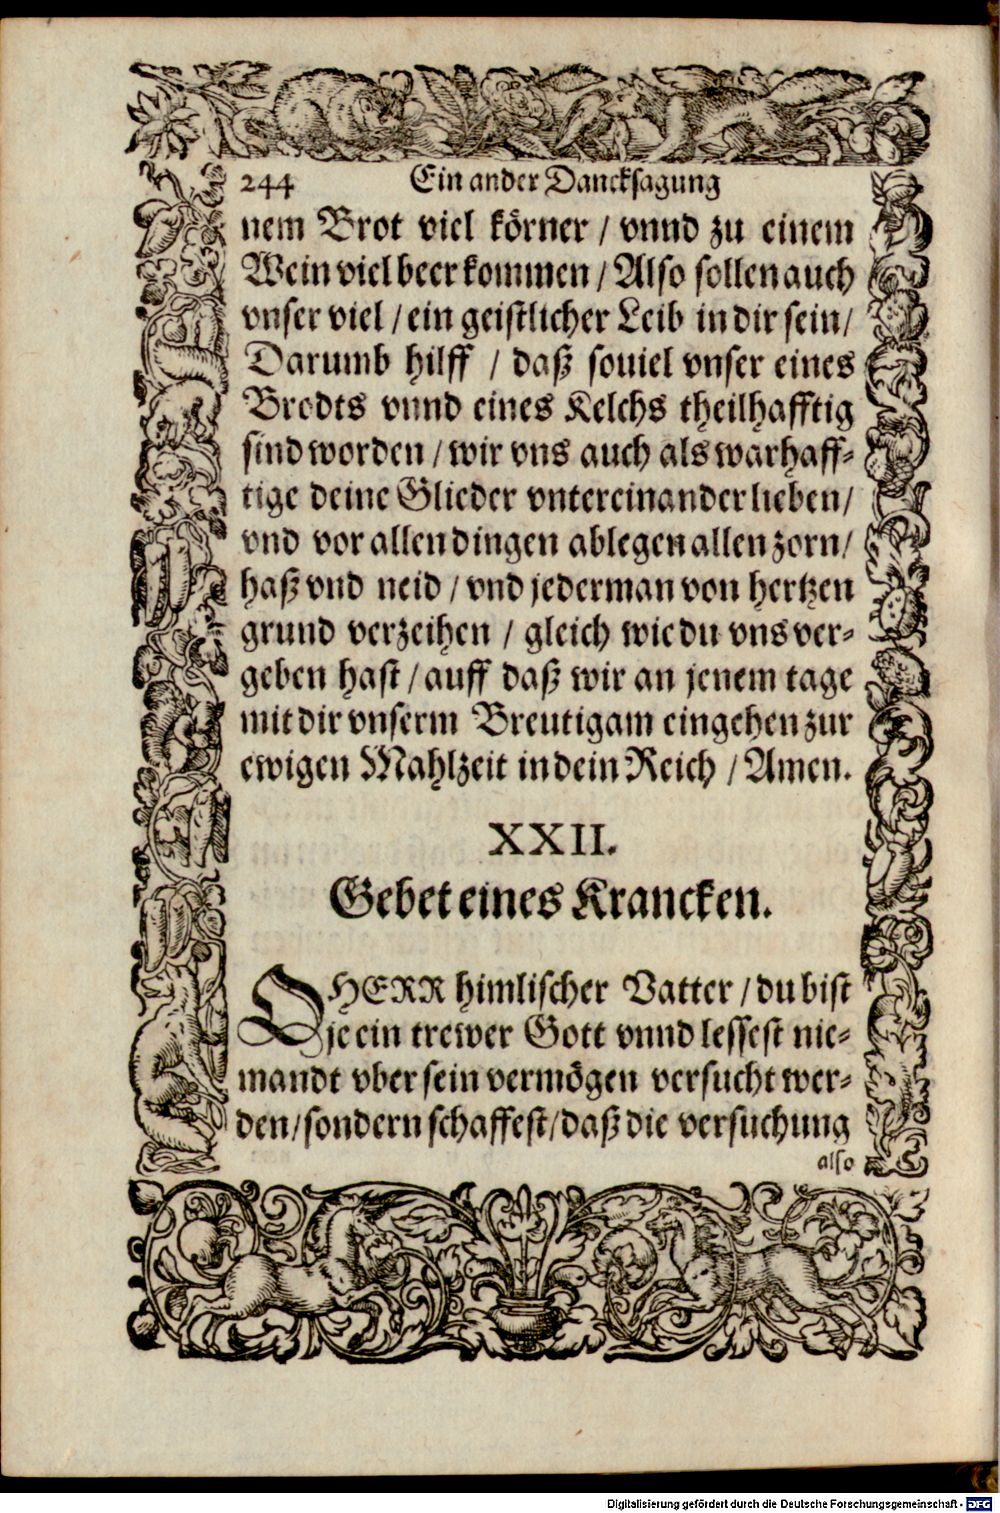 244 Ein ander Dancksagung
nem Brot viel körner / vnnd zu einem
Wein viel beer kommen / Also sollen auch
vnser viel / ein geistlicher Leib in dir sein /
Darumb hilff / daß souiel vnser eines
Brodts vnnd eines Kelchs theilhafftig
sind worden / wir vns auch als warhaff-
tige deine Glieder vntereinander lieben /
vnd vor allen dingen ablegen allen zorn /
haß vnd neid / vnd jederman von hertzen
grund verzeihen / gleich wie du vns ver-
geben hast / auff daß wir an jenem tage
mit dir vnserm Breutigam eingehen zur
ewigen Mahlzeit in dein Reich / Amen.
XXII.
Gebet eines Krancken.
O HERR himlischer Vatter / du bist
je ein trewer Gott vnnd lessest nie-
mandt vber sein vermögen versucht wer-
den / sondern schaffest / daß die versuchung
also
Digitalisierung gefördert durch die Deutsche Forschungsgemeinschaft - DFG